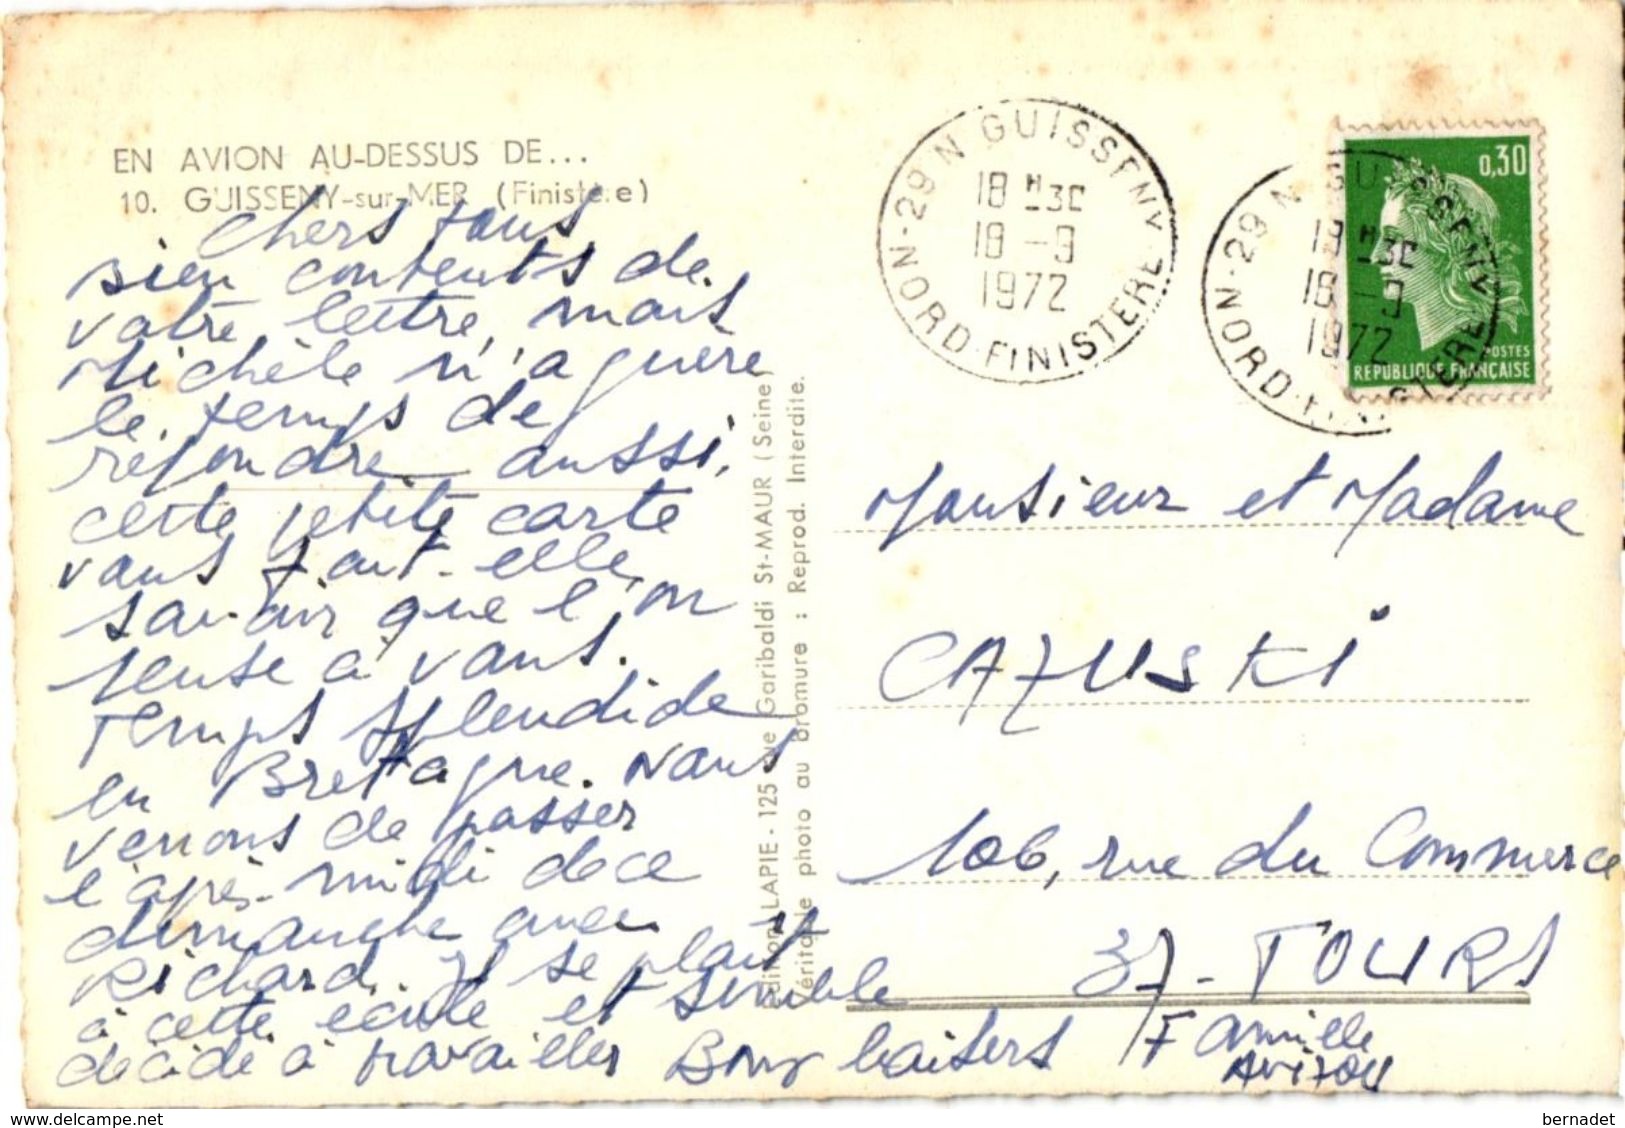 EN AVION AU-DESSUS DE...
10. GUISSENY-sur-MER (Finistère)
Chers tous
bien contents de
votre lettre, mais
Michèle n'a guere
le temps de
répondre aussi,
cette petite carte
vous fait-elle,
savoir que l'on
pense à vous.
Temps splendide
en Bretagne. Nous
venons de passer
l'après-midi de ce
dimanche avec
Richard. Il se plait
à cette école et semble
décidé à travailler Bons baisers
Famille
Edition LAPIE - 125 rue Garibaldi St-MAUR (Seine)
Véritable photo au bromure : Reprod. Interdite.
GUISSENY
29 N
18 H 30
18 - 9
1972
NORD-FINISTERE
GUISSENY
29 N
18 H 30
18 - 9
1972
NORD-FINISTERE
0,30
POSTES
REPUBLIQUE FRANÇAISE
Monsieur et Madame
CAZUSKI
106, rue du Commerce
37 - TOURS
www.delcampe.net
bernadet